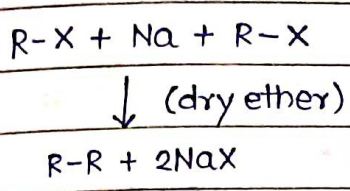 R-X + Na + R-X
↓ (dry ether)
R-R + 2NaX